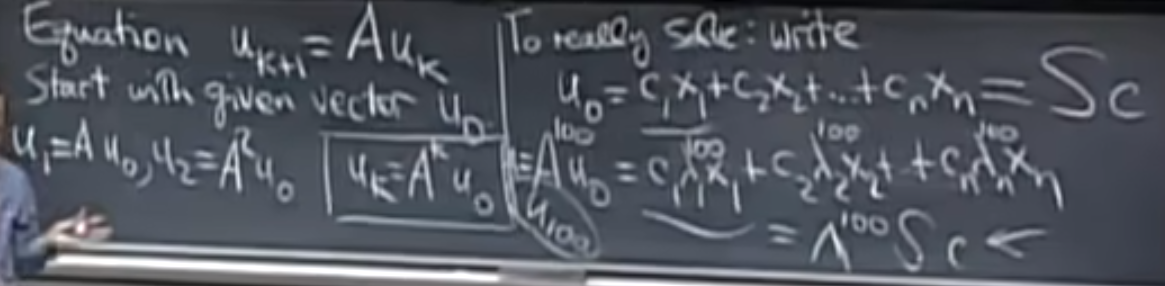 Equation u_{k+1} = A u_k
Start with given vector u_0
u_1 = A u_0, u_2 = A^2 u_0
u_k = A^k u_0
To really solve: write
u_0 = c_1 x_1 + c_2 x_2 + ... + c_n x_n = S c
A^{100} u_0 = c_1 λ_1^{100} x_1 + c_2 λ_2^{100} x_2 + + c_n λ_n^{100} x_n
u_{100}
= Λ^{100} S c ←